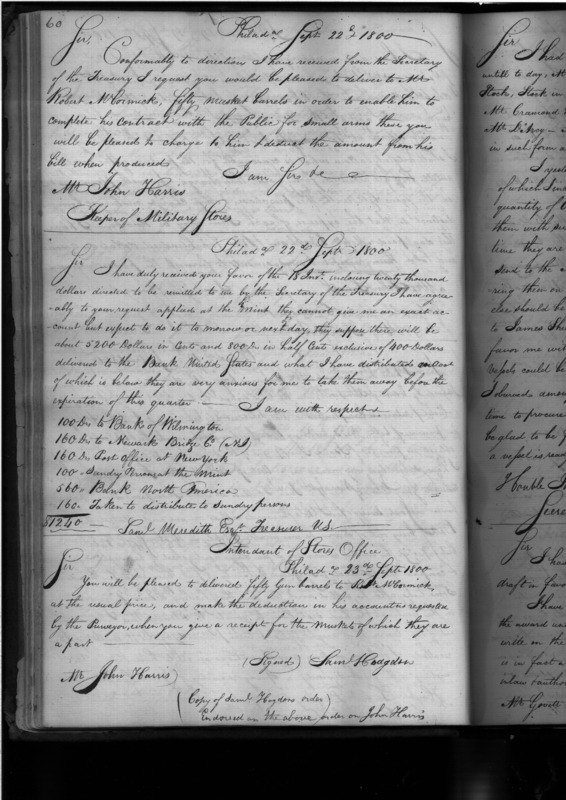 60
Philada. Sept. 22d 1800
Sir,
Conformably to directions I have received from the Secretary
of the Treasury I request you would be pleased to deliver to Mr
Robert McCormick, fifty musket barrels in order to enable him to
complete his contract with the Public for small arms these you
will be pleased to charge to him & deduct the amount from his
bill when produced
I am Sir &c
Mr John Harris
Keeper of Military Stores
Philada. 22d Sept. 1800
Sir
I have duly received your favor of the 18 Inst. inclosing twenty thousand
dollars directed to be remitted to me by the Secretary of the Treasury I have agree-
-ably to your request applied at the Mint they cannot give me an exact ac-
count but expect to do it to morrow or next day, they suppose there will be
about 5200 Dollars in Cents and 800 Do in half Cents exclusive of 400 Dollars
delivered to the Bank United States and what I have distributed
of which is below they are very anxious for me to take them away before the
expiration of this quarter — I am with respect
100 Do to Bank of Wilmington
160 Do to Newark Bridge Co (NJ)
160 Do Post Office at New York
100 - Sundry Persons at the Mint
560 - Bank North America
160 - Taken to distribute to Sundry persons
$1240
Saml. Meredith Esqr. Treasurer U.S.
Intendant of Stores Office
Philada. 23d Sept. 1800
Sir
You will be pleased to delivered Fifty Gun barrels to Robt. McCormick,
at the usual price, and make the deduction in his accounts as requested
by the Purveyor, when you give a receipt for the Muskets of which they are
a part
(Signed) Saml. Hodgdon
Mr John Harris
(Copy of Saml. Hogdons order)
Endorsed on the above order on John Harris
Sir
I had
untill to day,
Stock, Stock in
Mr. Cramond
Mr. Fitzroy -
in such form a
I yest
of which I m
quantity of
them with su
time they are
send to the
-ring them on
cles should be
to James The
favor me wit
Vessels could b
time to procure
be glad to be
a vessel is rea
Honble
Secre
Sir
I ha
draft in favo
I have
the award an
write on the
is in fact a
Mr Govett